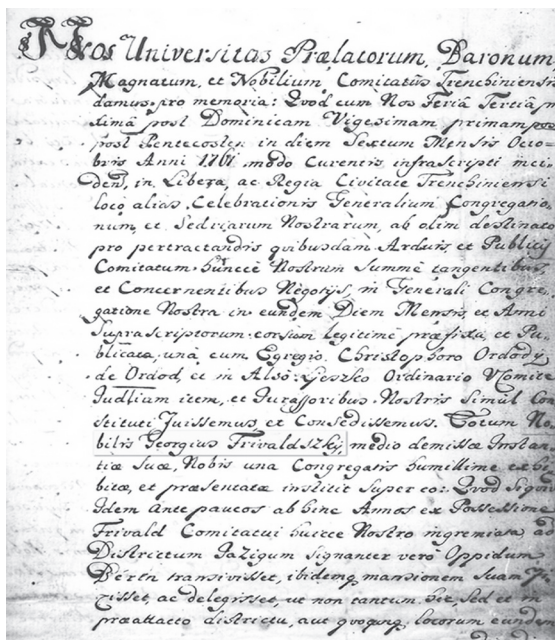 Nos Universitas Prælatorum, Baronum,
Magnatum, et Nobilium Comitatûs Trenchiniensis
damus pro memoria: Qvod cum Nos Feria Tertia
ximâ post Dominicam Vigesimam primam
post Pentecosten in diem Sextum Mensis Octo-
bris Anni 1761. modo Curentis infrascripti inci-
dens, in Libera, ac Regia Civitate Trenchiniensi
loco alias Celebrationis Generalium Congregatio-
num, et Sedriarum Nostrarum, ab olim destinato
pro pertractandis qvibusdam Arduis, et Publicis
Comitatum huncce Nostrum Summè tangentibus,
et Concernentibus Negotijs, in Generali Congre-
gatione Nostra in eundem Diem Mensis, et Anni
Suprascriptorum legitimè præfixa, et Pu-
blicata, unà cum Egregio Christophoro Ordody
de Ordod, et in Alsó-Lieszko Ordinario VComite
Judlium item, et Jurassoribus Nostris Simul Con
stituti Fuissemus, et Consedissemus. Totum No
bilis Georgius Trivaldszky, medio demissæ Instan-
tiæ suæ, Nobis una Congregatis humillime exhi
bitæ, et præsentatæ institit Super eo: Qvod
Idem ante paucos ab hinc Annos ex Possessione
Frivald Comitatui huicce Nostro ingremiata ad
Districtum Jazigum signanter verò Oppidum
Bértn transivisset, ibidemq mansionem Suam
xisset, ac delegisset, ut non tantum hic, Sed et in
præattacto districtu, aut qvoqvoq locorum eundem